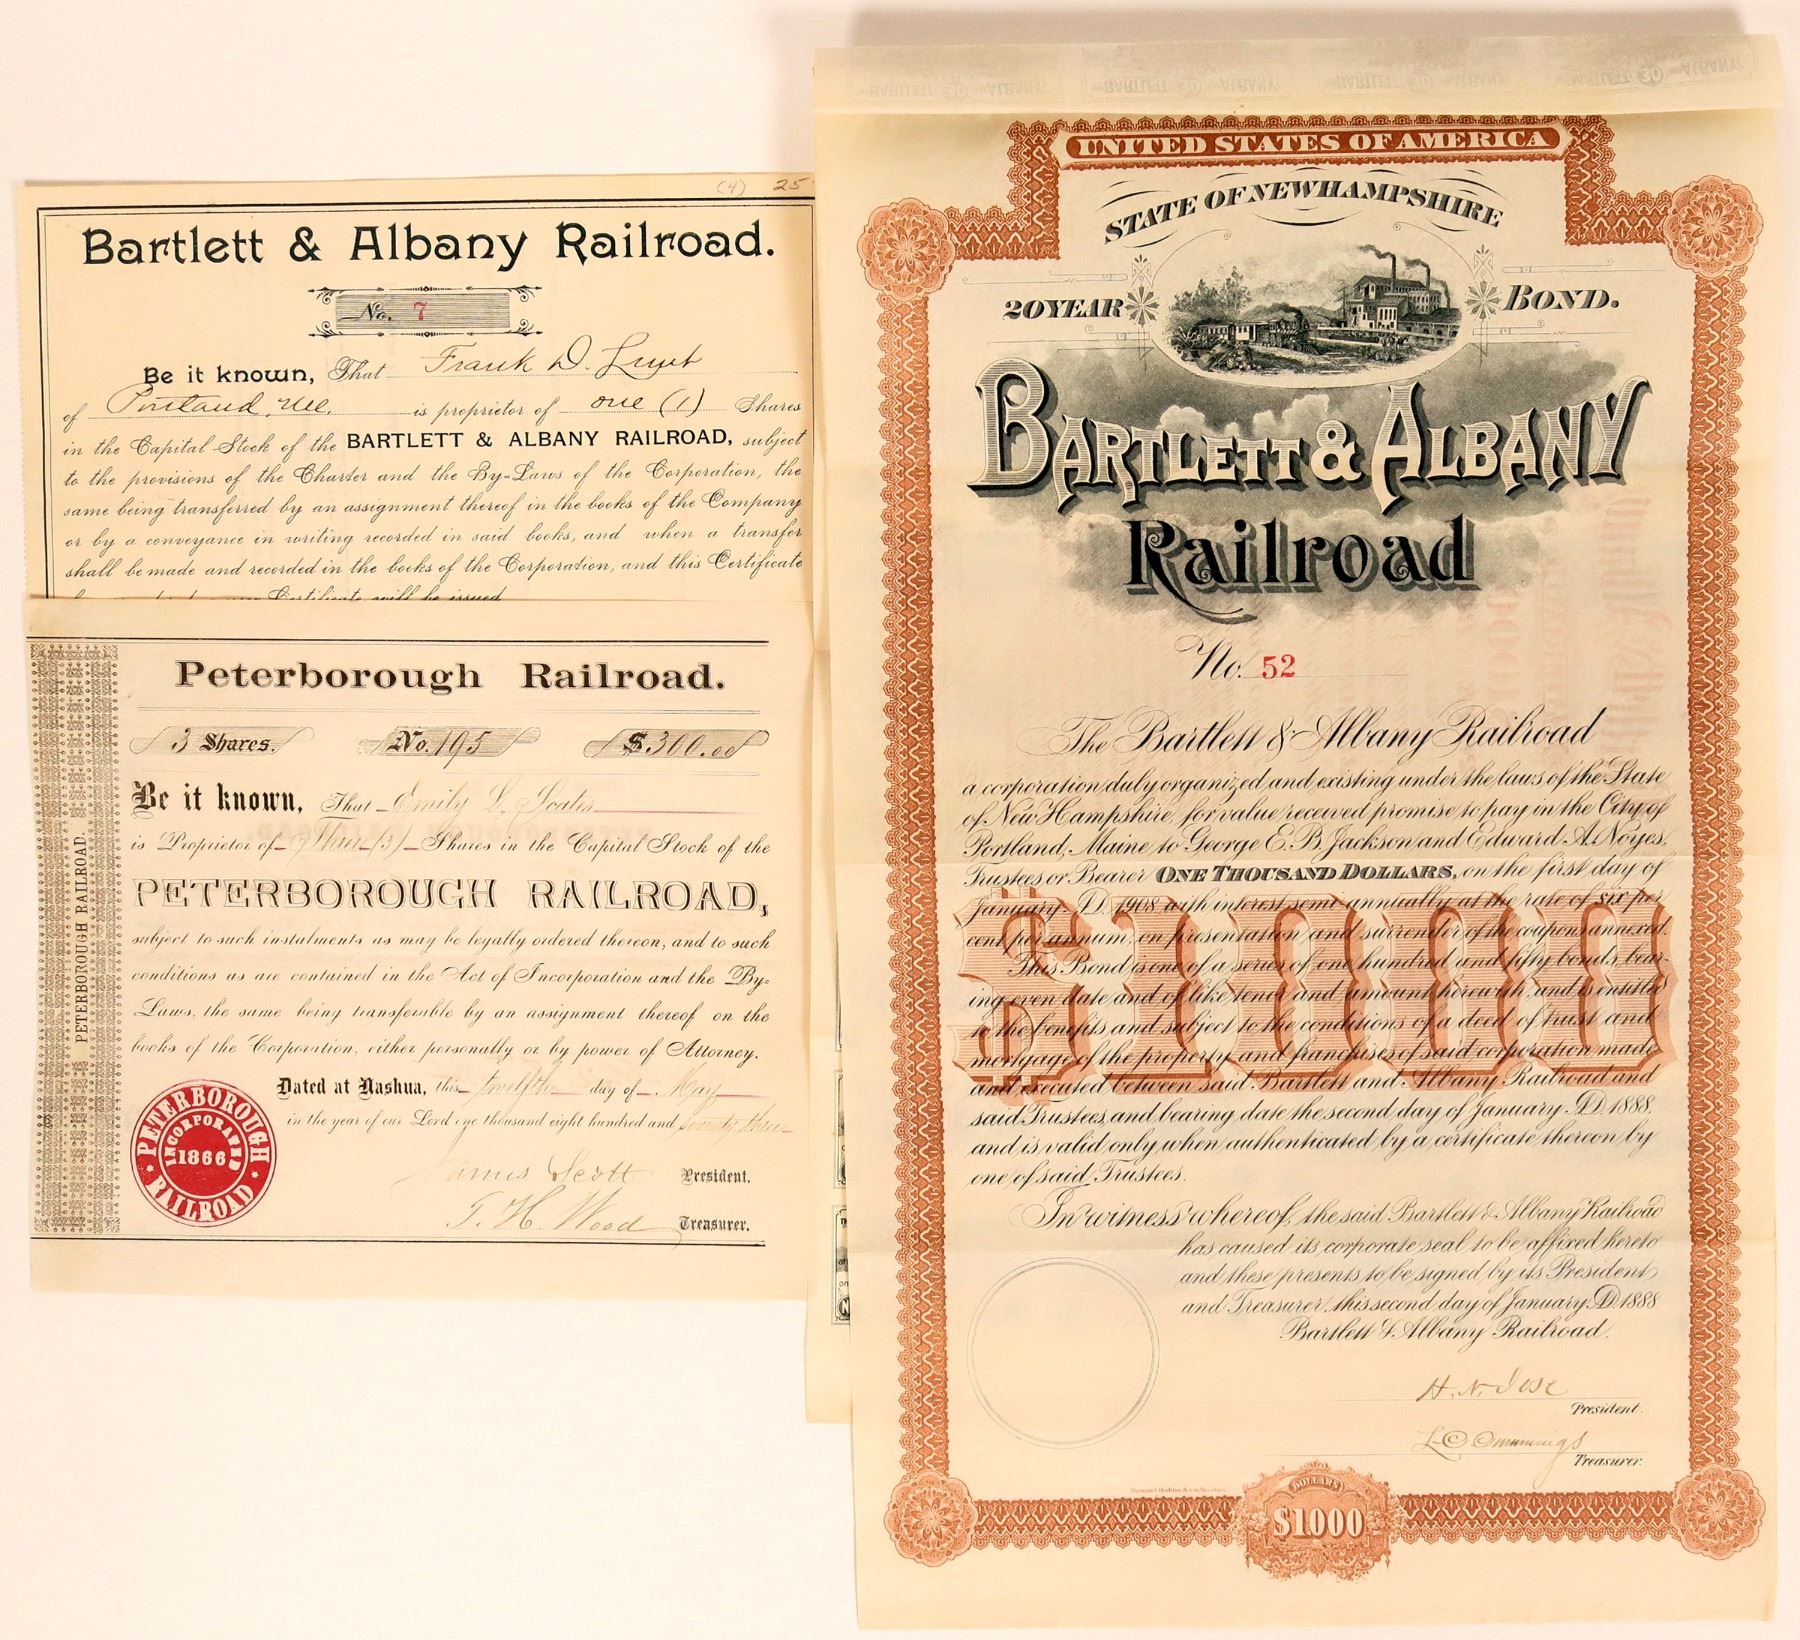 (4) 25
Bartlett & Albany Railroad.
No. 7
Be it known, That Frank D. Lunt
of Portland, Me. is proprietor of one (1) Shares
in the Capital Stock of the BARTLETT & ALBANY RAILROAD, subject
to the provisions of the Charter and the By-Laws of the Corporation, the
same being transferred by an assignment thereof in the books of the Company
or by a conveyance in writing recorded in said books, and when a transfer
shall be made and recorded in the books of the Corporation, and this Certificate
Certificate will be issued
Peterborough Railroad.
3 Shares. No. 195 $300.00
Be it known, That Emily L. Scales
is Proprietor of Three (3) Shares in the Capital Stock of the
PETERBOROUGH RAILROAD,
subject to such instalments as may be legally ordered thereon, and to such
conditions as are contained in the Act of Incorporation and the By-
Laws, the same being transferable by an assignment thereof on the
books of the Corporation, either personally or by power of Attorney.
Dated at Nashua, this twelfth day of May
in the year of our Lord one thousand eight hundred and seventy three
James Scott President.
T. H. Wood Treasurer.
PETERBOROUGH RAILROAD.
PETERBOROUGH RAILROAD
INCORPORATED
1866
BARTLETT 30 AND ALBANY
BARTLETT 30 AND ALBANY
BARTLETT 30 AND ALBANY
BARTLETT 30 AND ALBANY
UNITED STATES OF AMERICA
STATE OF NEW HAMPSHIRE
20 YEAR BOND.
BARTLETT & ALBANY
Railroad
No. 52
The Bartlett & Albany Railroad
a corporation duly organized and existing under the laws of the State
of New Hampshire, for value received promise to pay in the City of
Portland, Maine to George E. B. Jackson and Edward A. Noyes,
Trustees or Bearer ONE THOUSAND DOLLARS, on the first day of
January A.D. 1908 with interest semi-annually at the rate of six per
cent per annum, on presentation and surrender of the coupons annexed.
This Bond is one of a series of one hundred and fifty bonds bear-
ing even date and of like tenor and amount herewith, and is entitled
to the benefits, and subject to the conditions of a deed of trust and
mortgage of the property and franchises of said corporation made
and executed between said Bartlett and Albany Railroad and
said Trustees, and bearing date the second day of January A.D. 1888,
and is valid only when authenticated by a certificate thereon by
one of said Trustees.
$1000
In witness whereof, the said Bartlett & Albany Railroad
has caused its corporate seal to be affixed hereto
and these presents to be signed by its President
and Treasurer, this second day of January A.D. 1888
Bartlett & Albany Railroad.
H. N. Jose
President.
L C Cummings
Treasurer.
DOLLARS
$1000